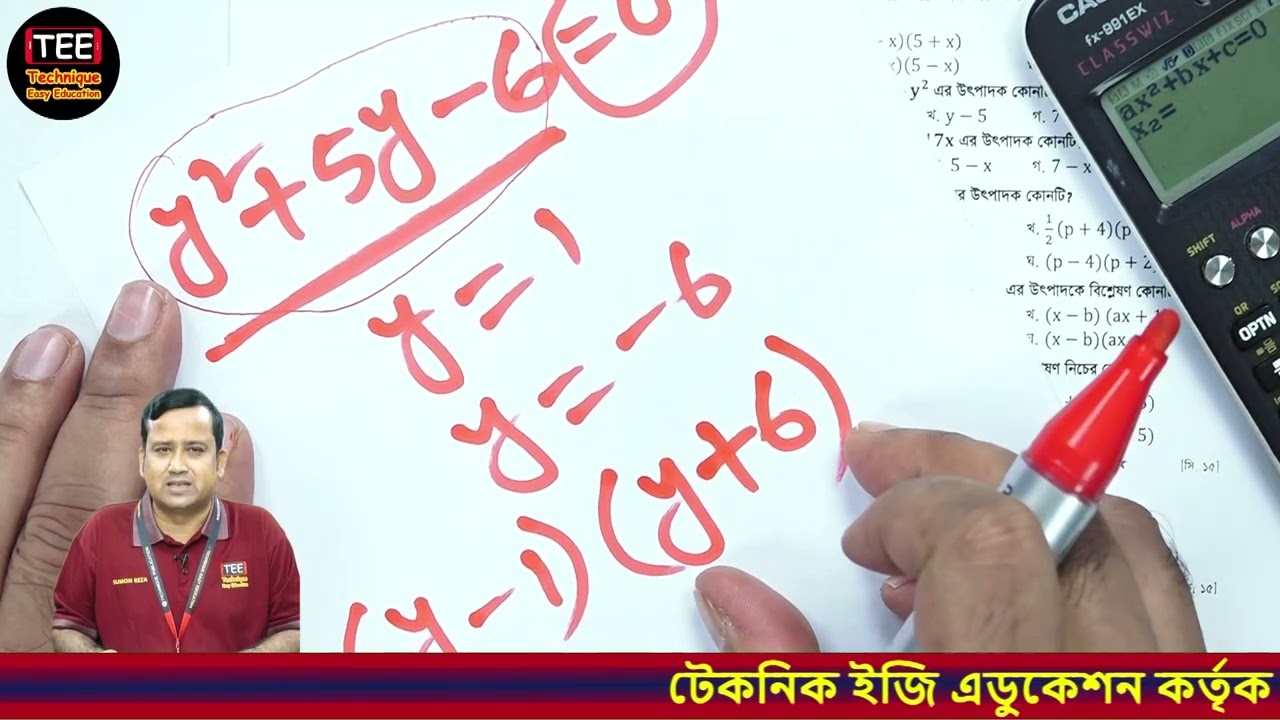 TEE
Technique
Easy Education
y² + 5y - 6 = 0
y = 1
y = -6
(y - 1) (y + 6)
x)(5 + x)
x)(5 − x)
y² এর উৎপাদক
খ. y − 5 গ. 7
7x এর উৎপাদক কোনটি
5 − x গ. 7 − x
র উৎপাদক কোনটি?
খ. ½(p + 4)(p
ঘ. (p − 4)(p + 2
এর উৎপাদকে বিশ্লেষণ
খ. (x − b) (ax +
(x − b)(ax
ষণ নিচের
5)
[সি. ১৫]
১৫]
fx-991EX
CLASSWIZ
ax²+bx+c=0
x₂=
SHIFT
ALPHA
QR
OPTN
SUMON REZA
TEE
Technique
টেকনিক ইজি এডুকেশন কর্তৃক